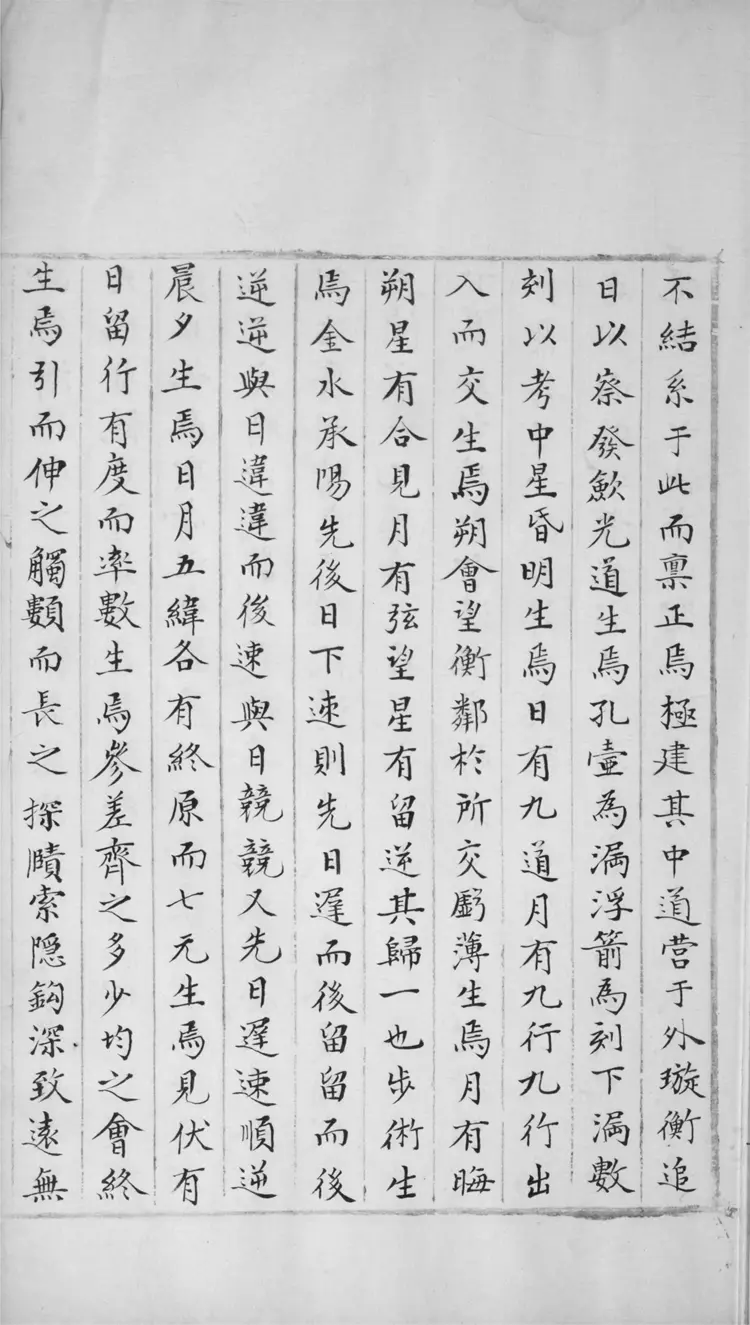 不結系于此而稟正焉極建其中道营于外璇衡追
日以察發歛光道生焉孔壷為漏浮箭為刻下漏數
刻以考中星昏明生焉日有九道月有九行九行出
入而交生焉朔會望衡鄰於所交虧薄生焉月有晦
朔星有合見月有弦望星有留逆其歸一也步術生
焉金水承陽先後日下速則先日遲而後留留而後
逆逆與日違違而後速與日競競又先日遲速順逆
晨夕生焉日月五緯各有終原而七元生焉見伏有
日留行有度而率數生焉參差齊之多少均之會終
生焉引而伸之觸類而長之探賾索隠鈎深致遠無